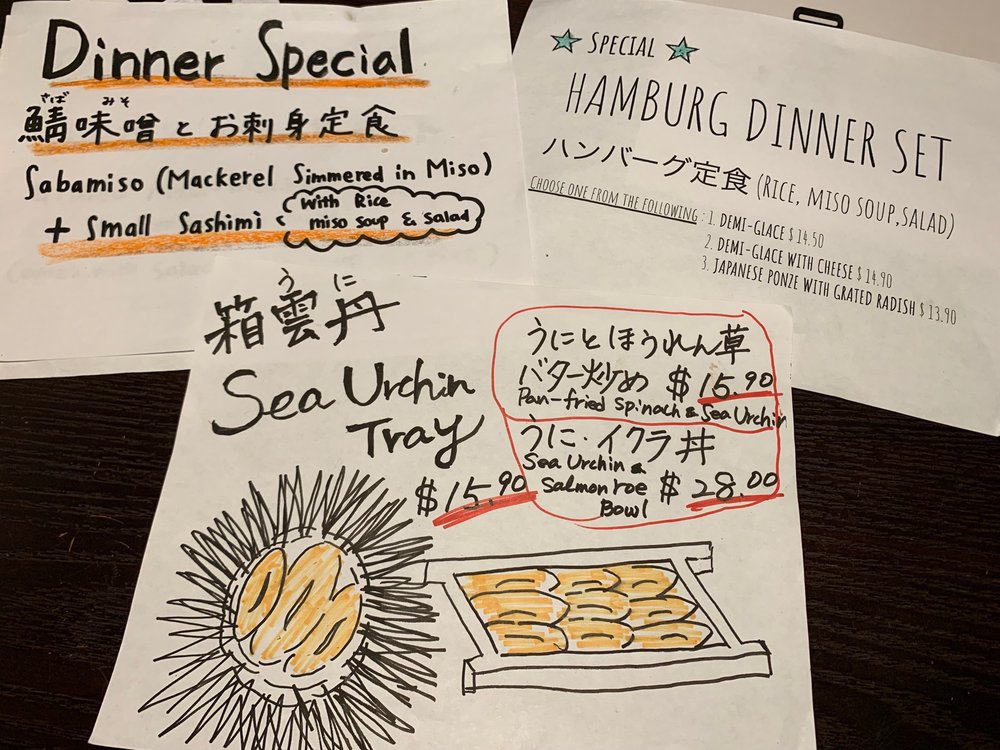 Dinner Special
さば みそ
鯖味噌とお刺身定食
Sabamiso (Mackerel Simmered in Miso)
+ Small Sashimi
With Rice
miso soup & Salad
SPECIAL
HAMBURG DINNER SET
ハンバーグ定食 (RICE, MISO SOUP, SALAD)
CHOOSE ONE FROM THE FOLLOWING : 1. DEMI-GLACE $ 14.50
2. DEMI-GLACE WITH CHEESE $ 14.90
3. JAPANESE PONZE WITH GRATED RADISH $ 13.90
うに
箱雲丹
Sea Urchin
Tray
$15.90
うにとほうれん草
バター炒め $15.90
Pan-fried Spinach & Sea Urchin
うに・イクラ丼
Sea Urchin &
Salmon roe $28.00
Bowl